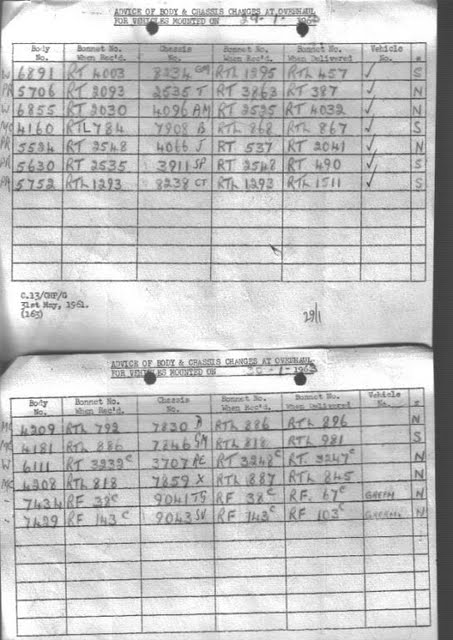 ADVICE OF BODY & CHASSIS CHANGES AT OVERHAUL
FOR VEHICLES MOUNTED ON 29-1-1963
Body No. Bonnet No. When Rec'd. Chassis No. Bonnet No. When Rec'd. Bonnet No. When Delivered Vehicle No.
W 6891 RT 4003 8234 GM RTL 1295 RTL 457 ✓ S
PR 5706 RT 2093 2535 T RT 3863 RT 387 ✓ N
W 6855 RT 2030 4096 AM RT 2525 RT 4032 ✓ N
MC 4160 RTL 784 7908 B RTL 868 RTL 867 ✓ S
PR 5524 RT 2548 4066 J RT 537 RT 2041 ✓ N
PR 5630 RT 2535 3911 SP RT 2548 RT 490 ✓ S
PR 5752 RTL 1293 8238 CT RTL 1293 RTL 1511 ✓ S
C.13/CMF/G
31st May, 1961.
(163)
29/1
ADVICE OF BODY & CHASSIS CHANGES AT OVERHAUL
FOR VEHICLES MOUNTED ON -1-1963
Body No. Bonnet No. When Rec'd. Chassis No. Bonnet No. When Rec'd. Bonnet No. When Delivered Vehicle No.
MC 4209 RTL 792 7830 RTL 886 RTL 896 N
MC 4181 RTL 886 7846 GM RTL 818 RTL 981 S
W 6111 RT 3232c 3707 AE RT 3248c RT 3247c N
MC 4208 RTL 818 7859 X RTL 887 RTL 845 N
7434 RF 38c 9041 TG RF 38c RF 67c GREEN N
7429 RF 143c 9043 SV RF 143c RF 103c GREEN N